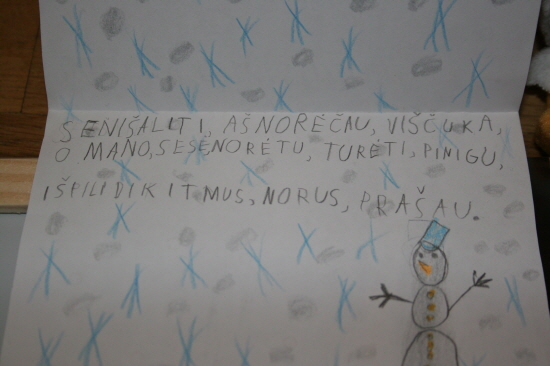 SENIŠALITI, AŠNORĖČAU, VIŠČUKA,
O MANO, SESĖNORĖTU, TURĖTI, PINIGU,
IŠPILIDIKITMUS, NORUS, PRAŠAU.